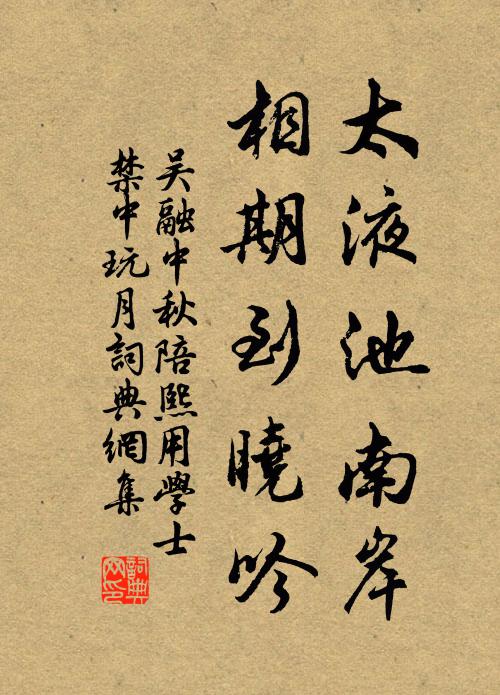 太液池南岸
相期到曉吟
吳融中秋陪熙用學士
禁中玩月詞典網集
詞典
网印